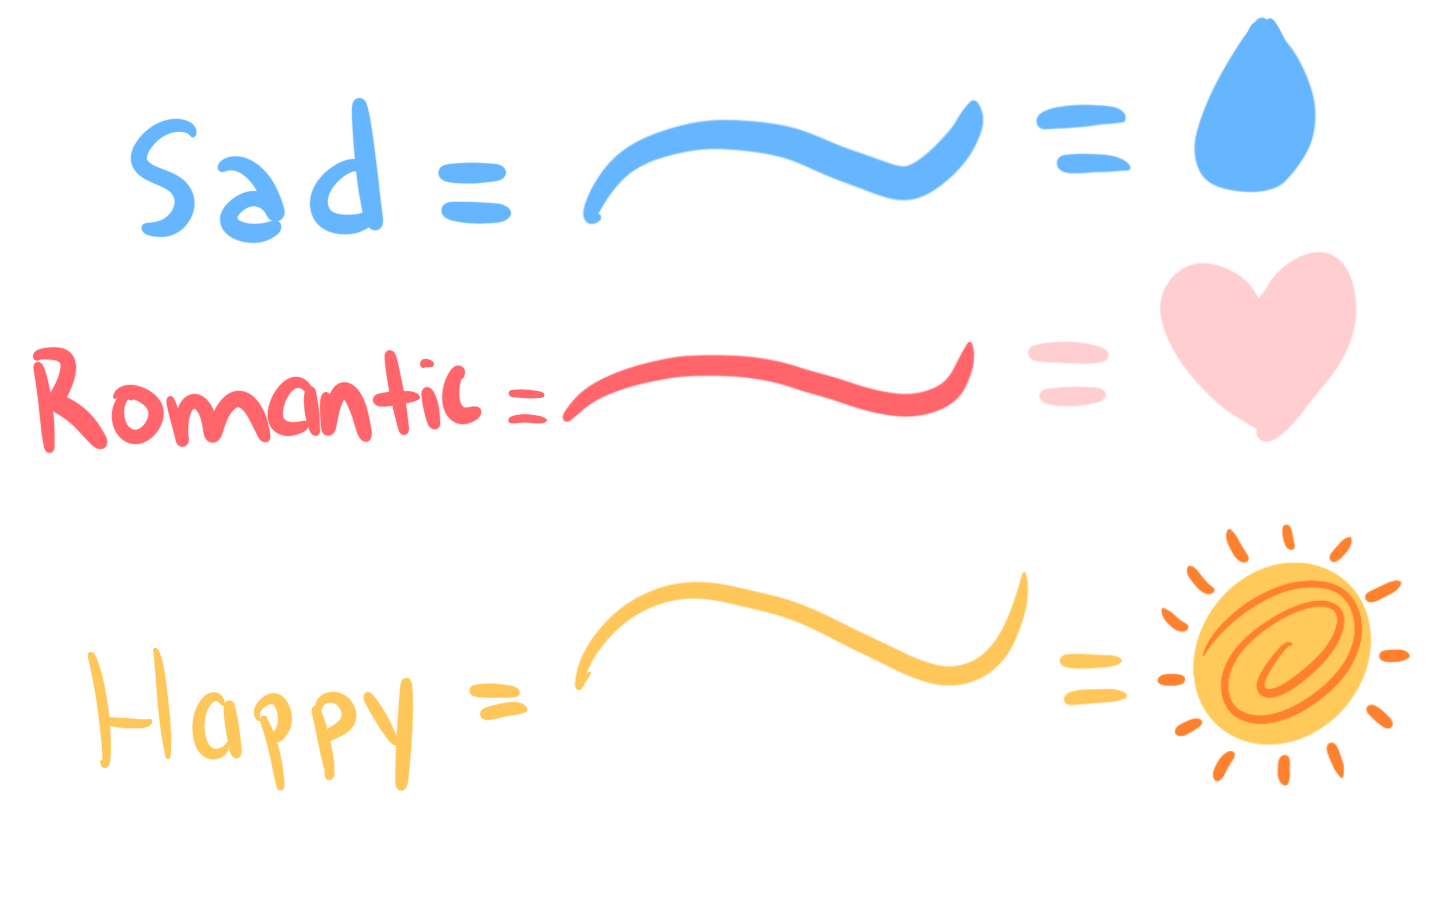 Sad = =
Romantic = =
Happy = =